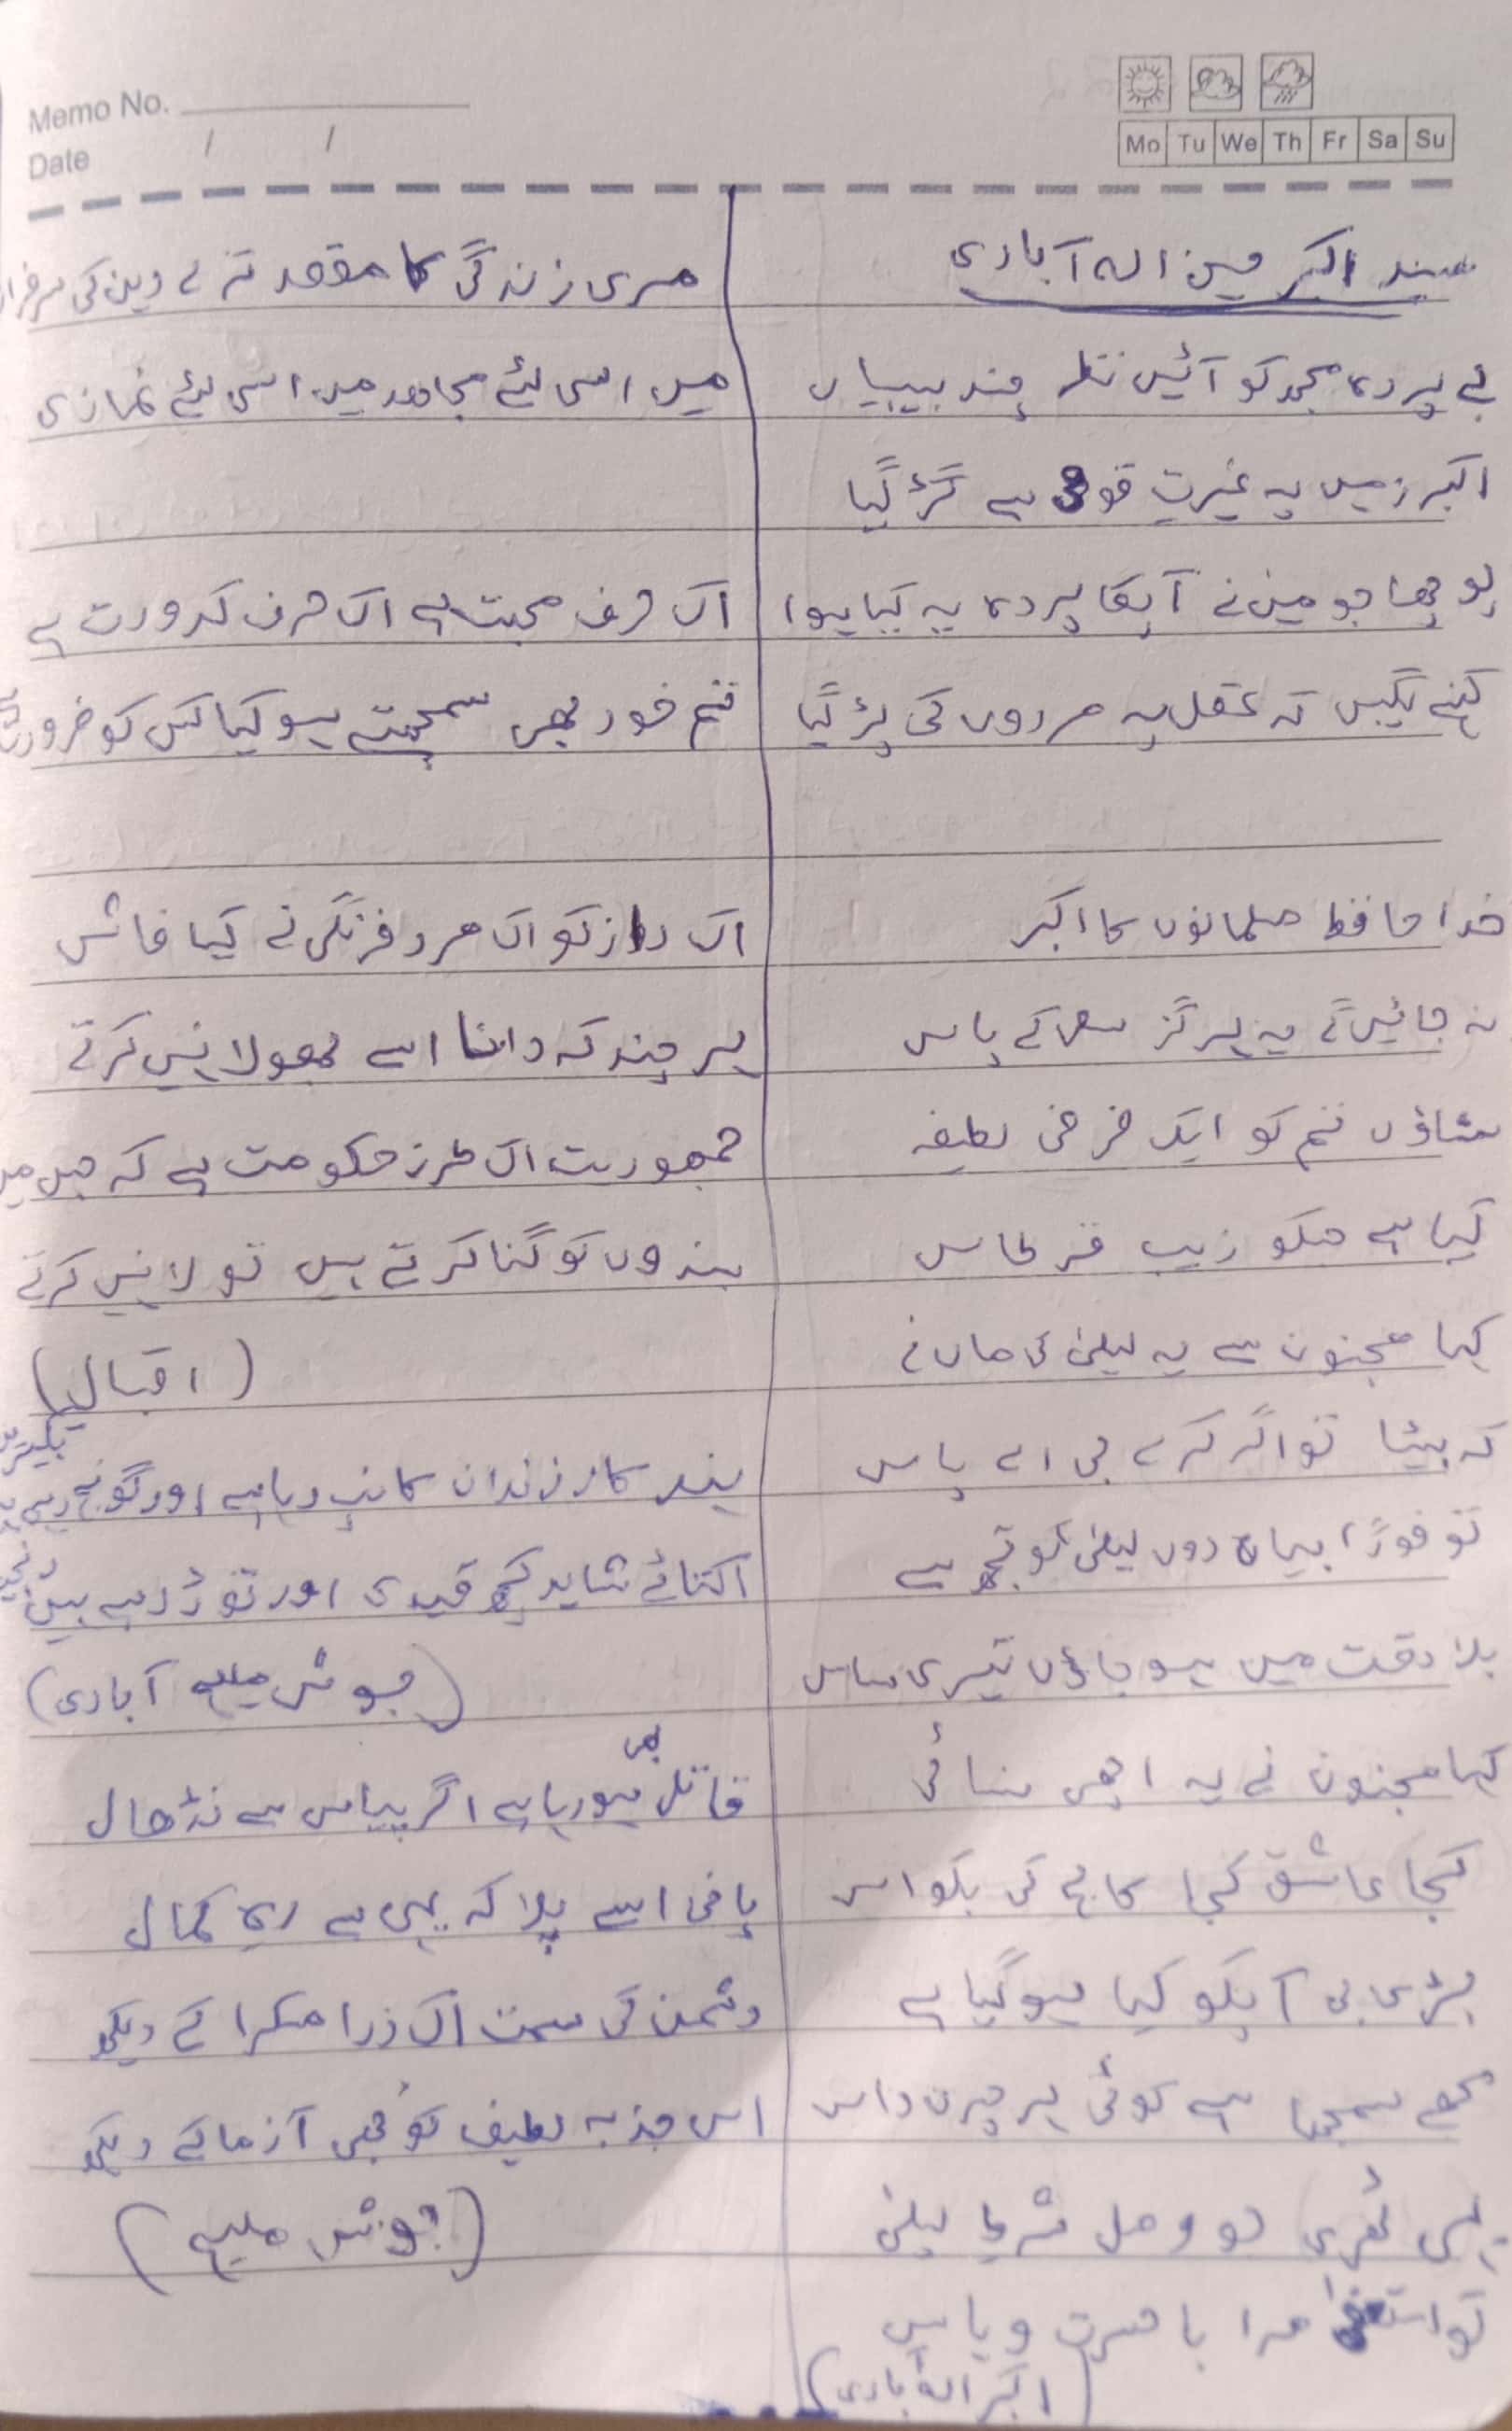 Memo No.
Date / /
Mo Tu We Th Fr Sa Su
سید اکبر حسین الہ آبادی
بے پردہ مجھ کو آئیں نظر چند بیبیاں
اکبر زمیں پہ غیرتِ قومی سے گڑ گیا
پوچھا جو میں نے آپکا پردہ یہ کیا ہوا
کہنے لگیں کہ عقل پہ مردوں کی پڑ گیا
خدا حافظ مسلمانوں کا اکبر
نہ جائیں گے یہ ہرگز سعی کے پاس
سناؤں تم کو ایک فرضی لطیفہ
کیا ہے جسکو زیب قرطاس
کہا مجنون سے یہ لیلیٰ کی ماں نے
کہ بیٹا تو اگر کرے بی اے پاس
تو فوراً بیاہ دوں لیلیٰ کو تجھ سے
بلا دقت میں ہو جاؤں تیری ساس
کہا مجنون نے یہ اچھی سنائی
کجا عاشق کجا کالج کی بکواس
بڑی بی آپکو کیا ہو گیا ہے
مجھے سمجھا ہے کوئی ہر چرن داس
یہی ٹھہری جو وصل شرط لیلیٰ
تو استعفیٰ مرا باحسرت و یاس
(اکبر الہ آبادی)
مری زندگی کا مقصد ترے دین کی سرفراز
میں اسی لئے مجاھد میں اسی لیئے نمازی
اک طرف محبت ہے اک طرف کدورت ہے
تم خود بھی سمجھتے ہو کیا کس کو ضرورت
اک راز کو اک مرد فرنگی نے کیا فاش
ہر چند کہ دانا اسے کھولا نہیں کرتے
جمھوریت اک طرز حکومت ہے کہ جس میں
بندوں کو گنا کرتے ہیں تولا نہیں کرتے
(اقبال)
ہند کا زندان کانپ رہا ہے اور گونج رہی ہے تکبیریں
اکتائے شاید کچھ قیدی اور توڑ رہے ہیں زنجیریں
(جوش ملیح آبادی)
قاتل بھی ہو رہا ہے اگر پیاس سے نڈھال
پانی اسے پلا کہ یہی ہے رہِ کمال
دشمن کی سمت اک ذرا مسکرا کے دیکھ
اس جذبہ لطیف کو بھی آزما کے دیکھ
(جوش ملیح)